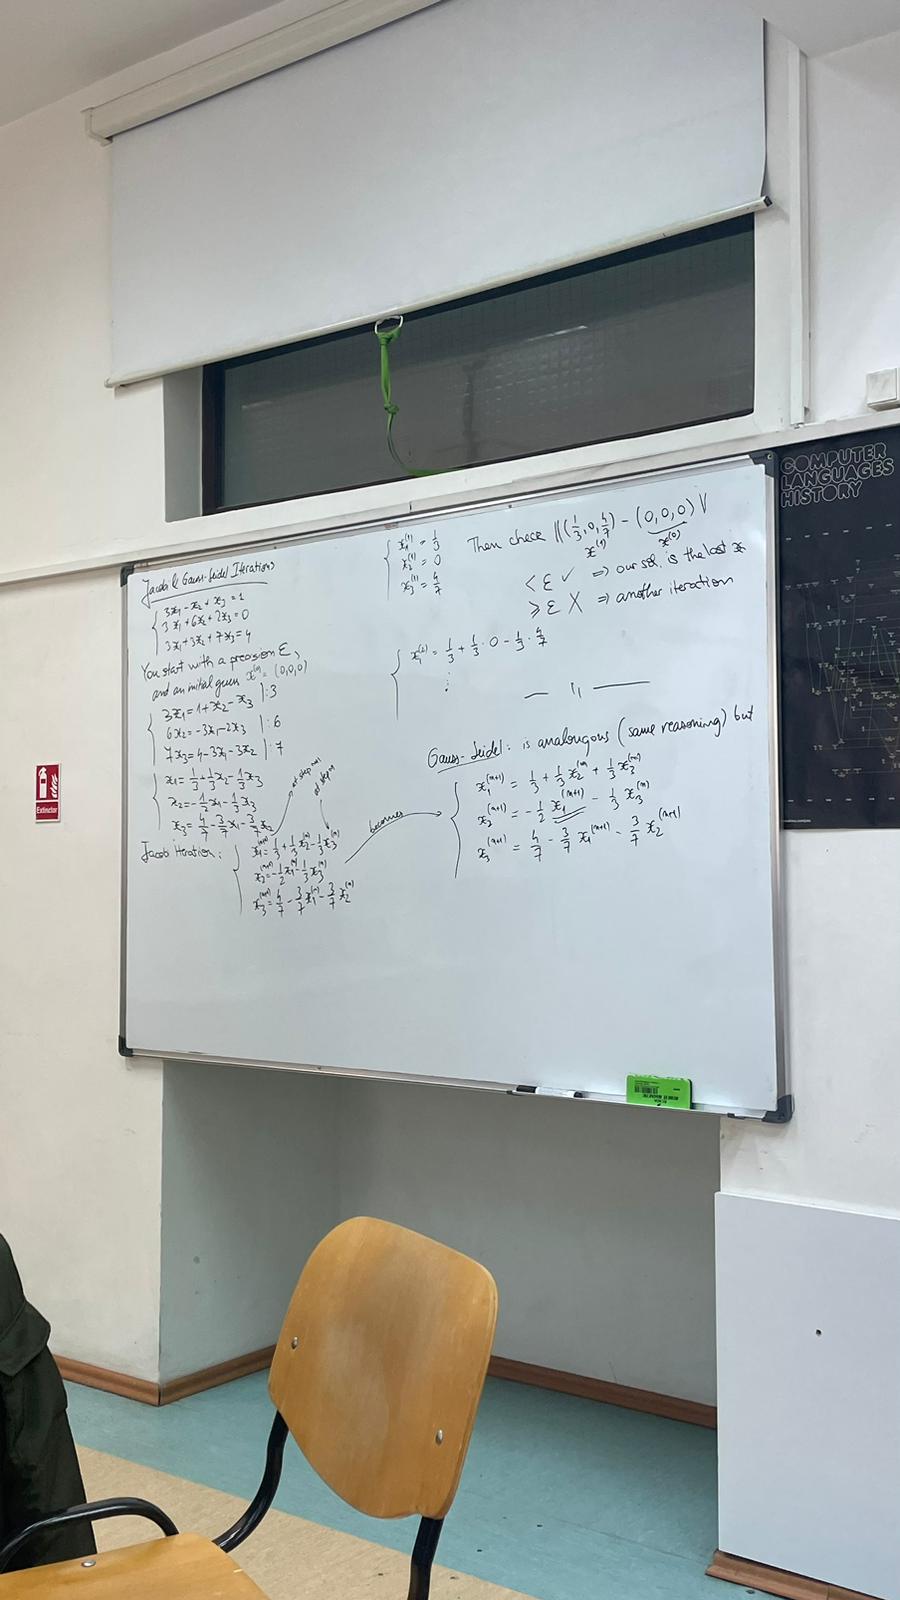 Jacobi & Gauss-Seidel Iterations
3x₁ - x₂ + x₃ = 1
3x₁ + 6x₂ + 2x₃ = 0
3x₁ + 3x₂ + 7x₃ = 4
You start with a precision ε,
and an initial guess x⁽⁰⁾ = (0,0,0)
3x₁ = 1 + x₂ - x₃ |:3
6x₂ = -3x₁ - 2x₃ |:6
7x₃ = 4 - 3x₁ - 3x₂ |:7
x₁ = 1/3 + 1/3 x₂ - 1/3 x₃
x₂ = -1/2 x₁ - 1/3 x₃
x₃ = 4/7 - 3/7 x₁ - 3/7 x₂
at step n+1
at step n
Jacobi iteration:
x₁⁽ⁿ⁺¹⁾ = 1/3 + 1/3 x₂⁽ⁿ⁾ - 1/3 x₃⁽ⁿ⁾
x₂⁽ⁿ⁺¹⁾ = -1/2 x₁⁽ⁿ⁾ - 1/3 x₃⁽ⁿ⁾
x₃⁽ⁿ⁺¹⁾ = 4/7 - 3/7 x₁⁽ⁿ⁾ - 3/7 x₂⁽ⁿ⁾
becomes
x₁⁽¹⁾ = 1/3
x₂⁽¹⁾ = 0
x₃⁽¹⁾ = 4/7
Then check ||(1/3, 0, 4/7) - (0,0,0)||
x⁽¹⁾ x⁽⁰⁾
< ε ✓ ⇒ our sol. is the last x
≥ ε X ⇒ another iteration
x₁⁽²⁾ = 1/3 + 1/3 · 0 - 1/3 · 4/7
⋮
— 〃 —
Gauss-Seidel: is analogous (same reasoning) but
x₁⁽ⁿ⁺¹⁾ = 1/3 + 1/3 x₂⁽ⁿ⁾ + 1/3 x₃⁽ⁿ⁾
x₂⁽ⁿ⁺¹⁾ = -1/2 x₁⁽ⁿ⁺¹⁾ - 1/3 x₃⁽ⁿ⁾
x₃⁽ⁿ⁺¹⁾ = 4/7 - 3/7 x₁⁽ⁿ⁺¹⁾ - 3/7 x₂⁽ⁿ⁺¹⁾
COMPUTER
LANGUAGES
HISTORY
Extinctor